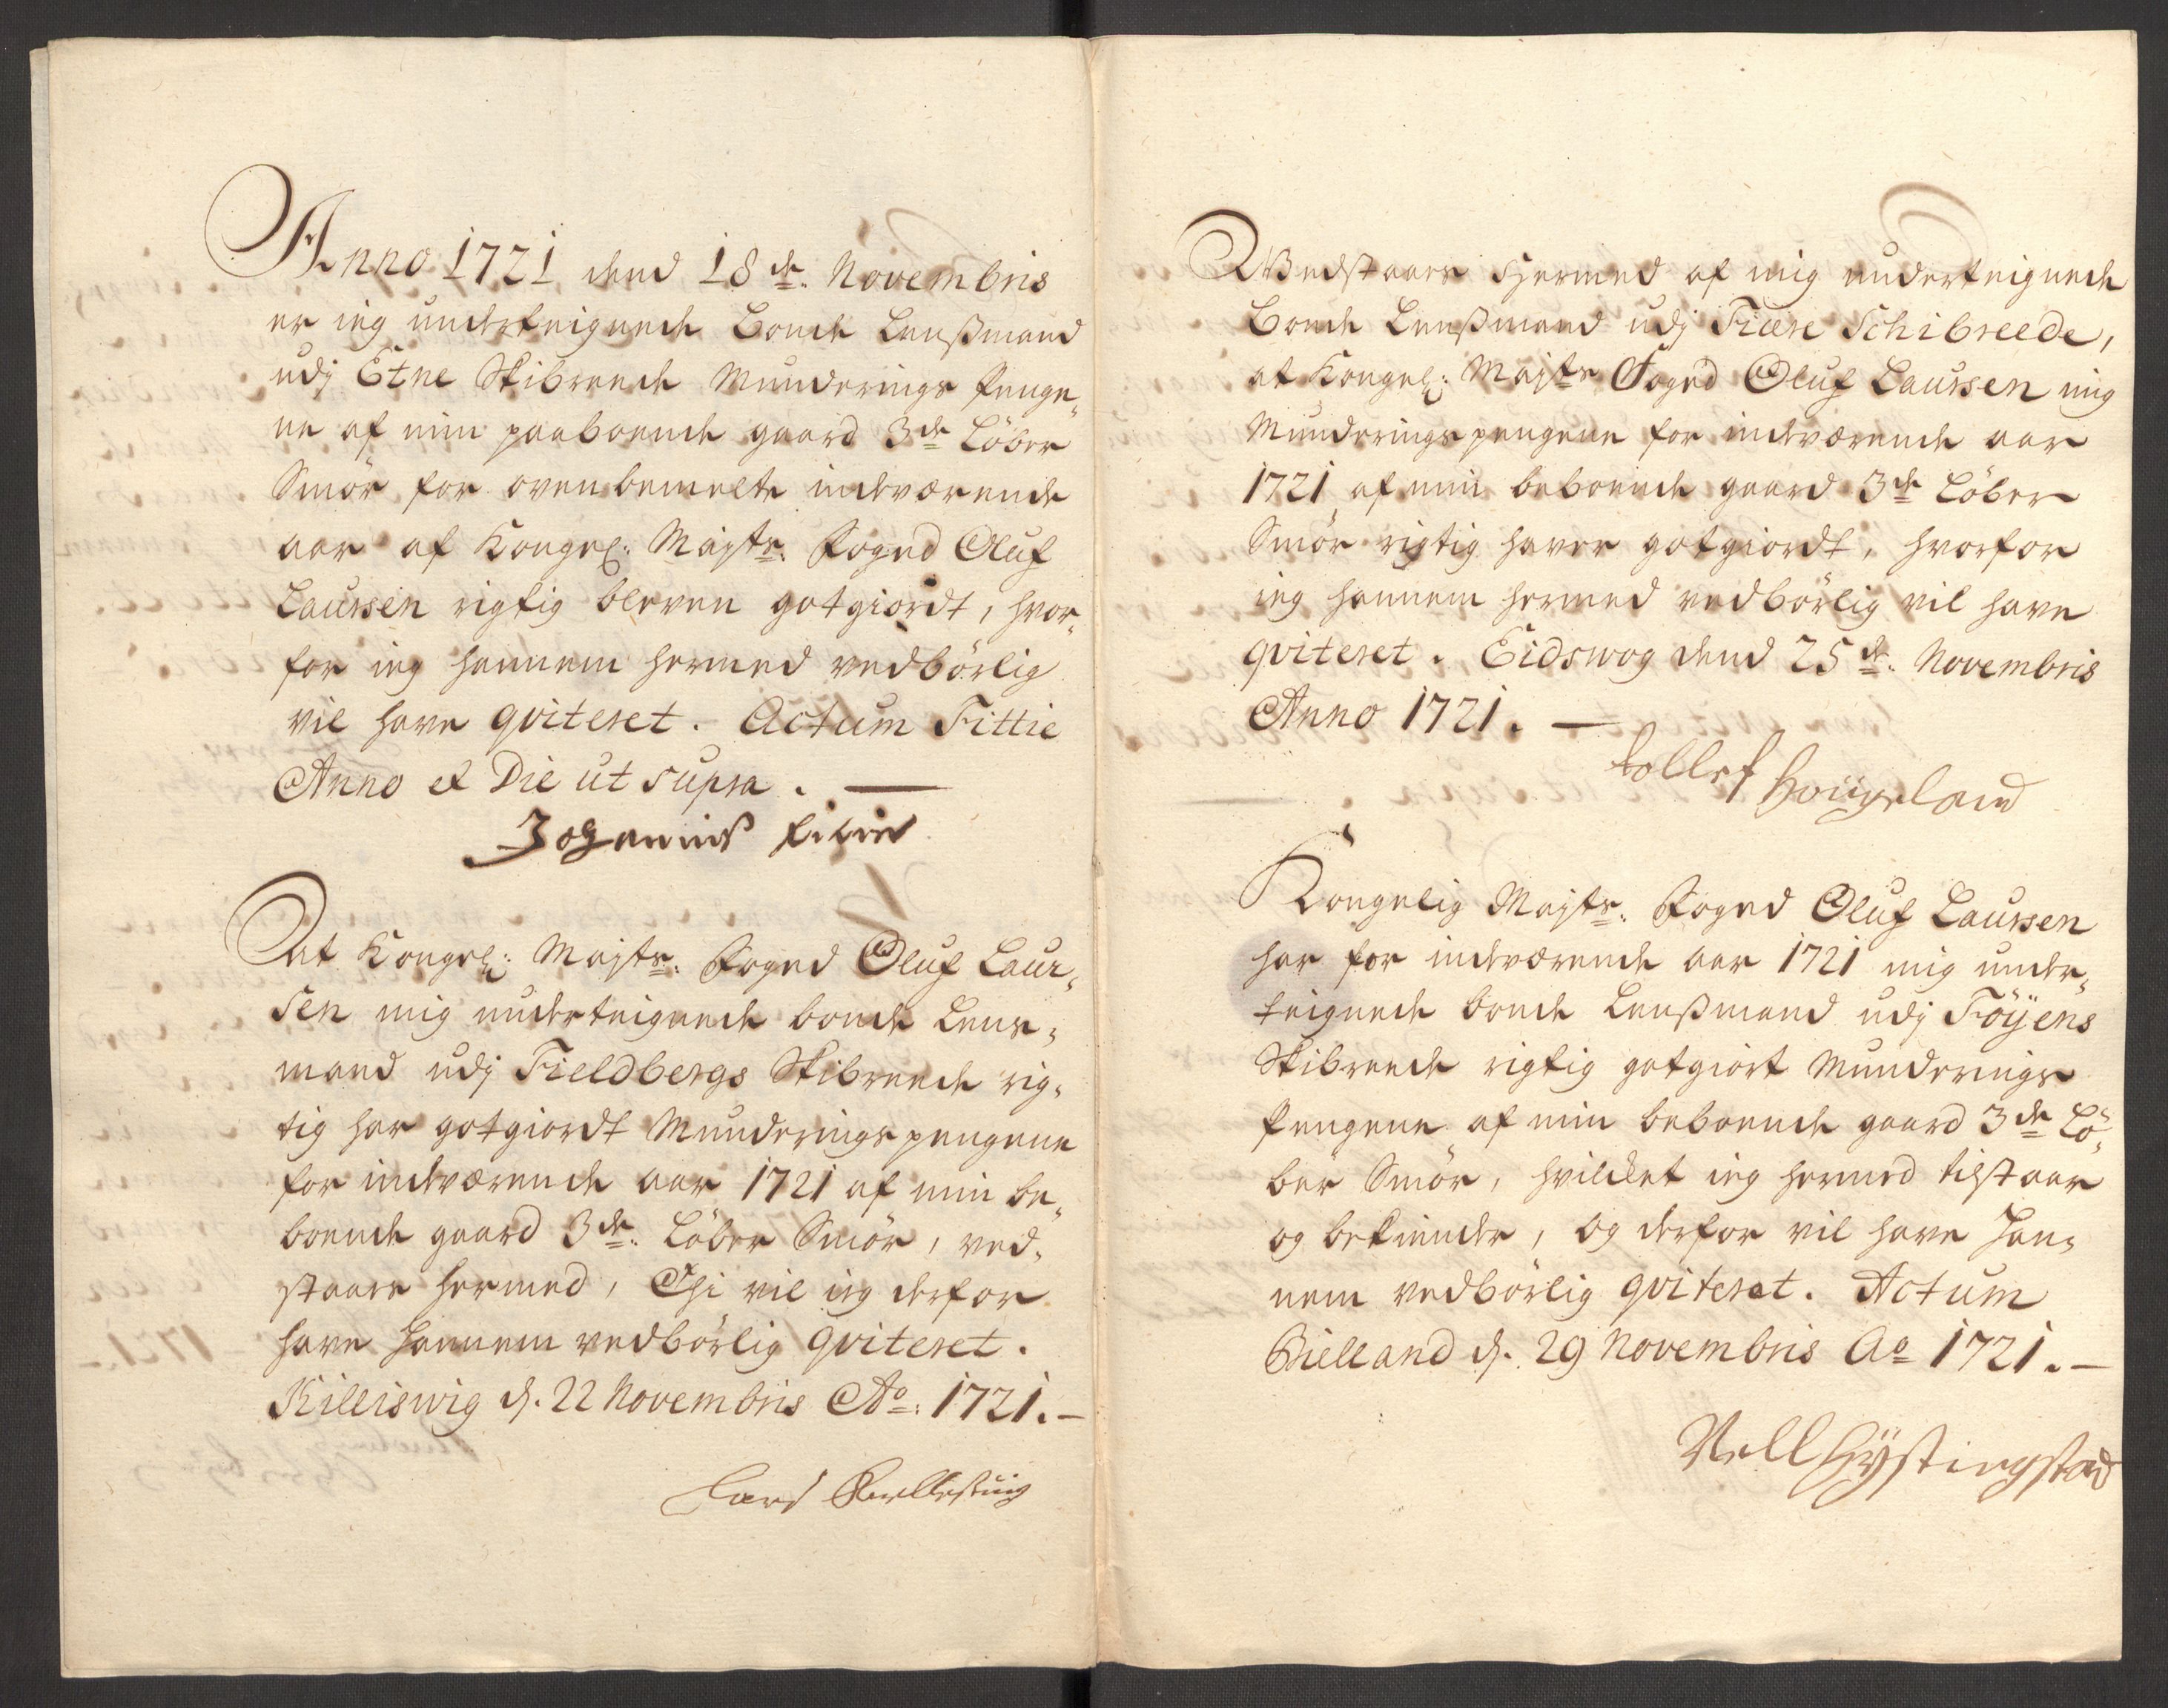 Anno 1721 dend 18de. Novembris
er ieg underteignede Bonde Lensmand
udj Etne Skibreede Munderings Penge¬
ne af min paaboende gaard 3de Löber
Smör for ovenbemelte indeværende
aar af Kongel: Majts. Foged Oluf
Laursen rigtig bleven gotgiordt, hvor¬
for ieg hannem hermed vedbörlig
vil have qviteret. Actum Fittie
Anno et Die ut supra. —
Johannis
At Kongel: Majts. Foged Oluf Laur¬
sen mig underteignede bonde Lens¬
mand udj Fieldbergs Skibreede rig¬
tig har gotgiordt Munderingspengene
for indeværende aar 1721 af min be¬
boende gaard 3de. Löber Smör, ved¬
staaes hermed, Thi vil ieg derfor
have hannem vedbörlig qviteret.
Killiswig d. 22 Novembris Ao. 1721. —
Lars
Vedstaaes hermed af mig underteignede
Bonde Lensmand udj Fiære Schibreede,
at Kongel: Majts Foged Oluf Laursen mig
Munderingspengene for indeværende aar
1721 af min beboende gaard 3de Löber
Smör rigtig haver gotgiordt, hvorfor
ieg hannem hermed vedbörlig vil have
qviteret. Eidswog dend 25de. Novembris
Anno 1721. —
Tollef Hougeland
Kongelig Majts. Foged Oluf Laursen
har for indeværende aar 1721 mig under¬
teignede bonde Lensmand udj Föyens
Skibreede rigtig gotgiort Munderings
Pengene af min beboende gaard 3de Lö¬
ber Smör, hvilcket ieg hermed tilstaar
og bekiender, og derfor vil have Han¬
nem vedbörlig qviteret. Actum
Bielland d. 29 Novembris Ao 1721. —
Nell Hystingstad